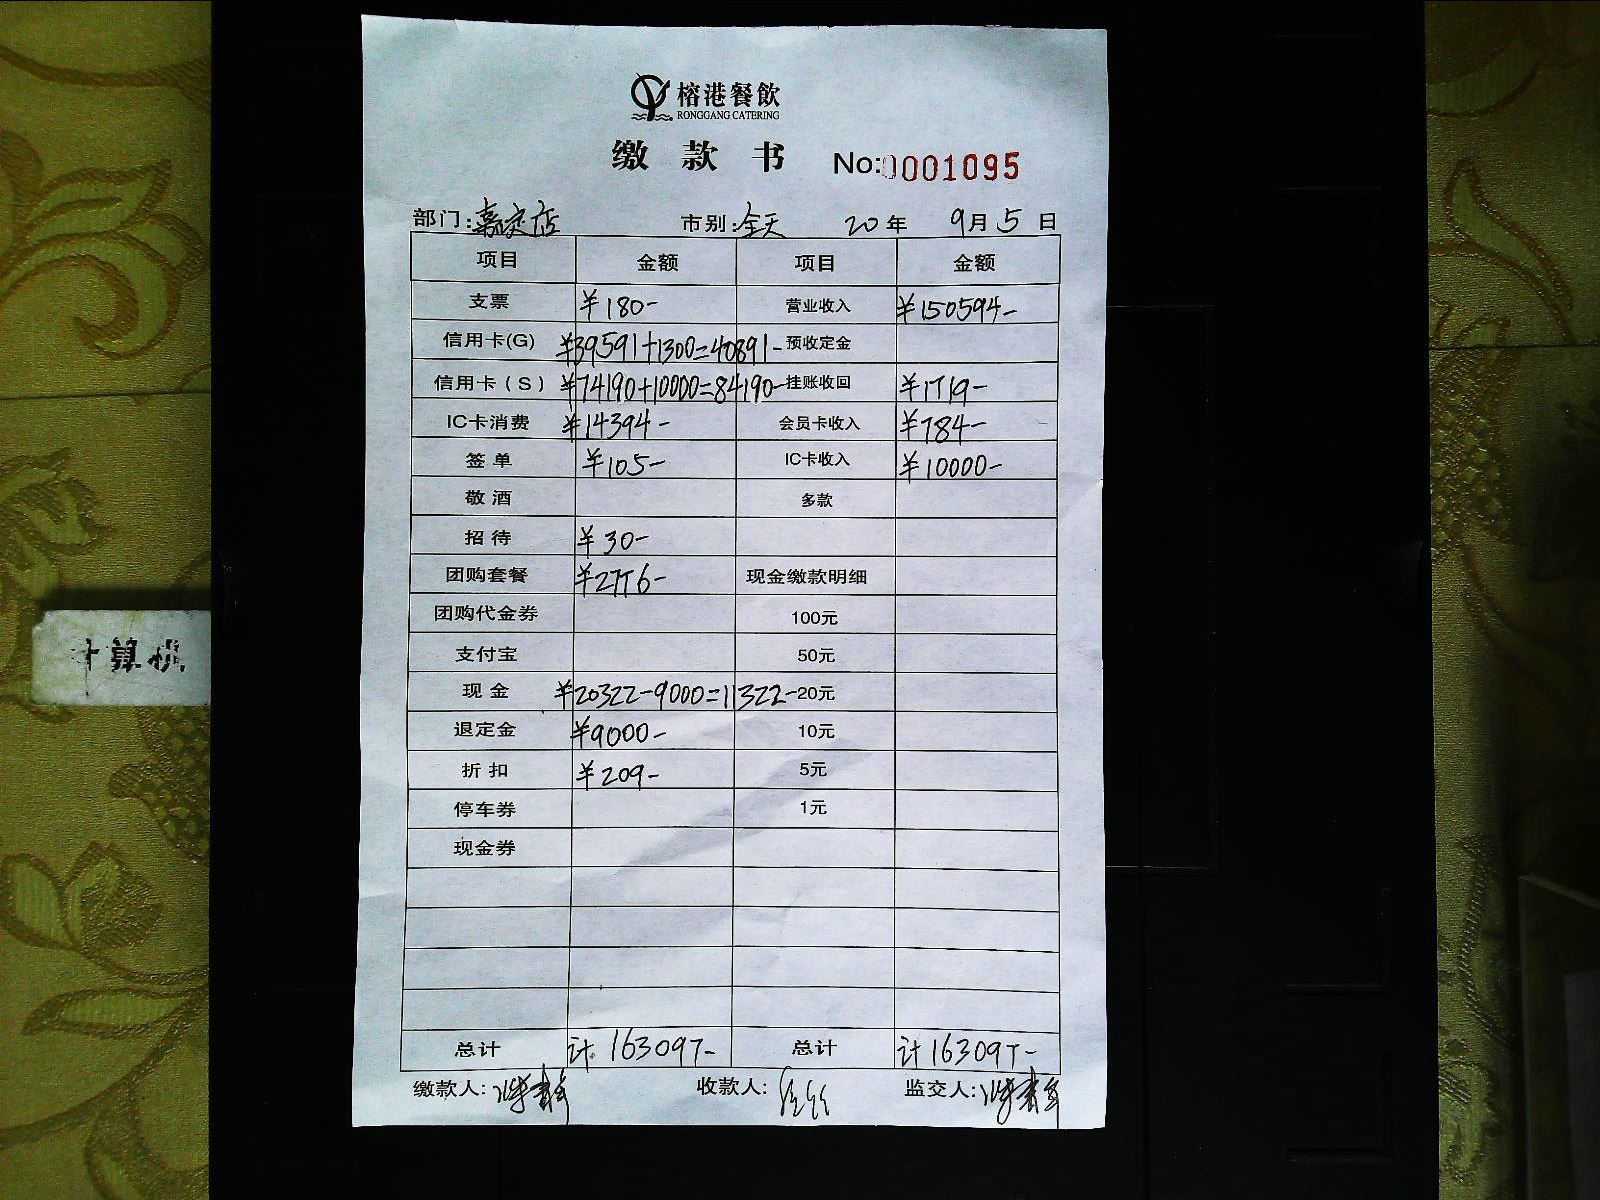 榕港餐飲
RONGGANG CATERING
缴款书 No:0001095
部门:嘉定店 市别:全天 20年 9月5日
项目 金额 项目 金额
支票 ¥180- 营业收入 ¥150594-
信用卡(G) ¥39591+1300=40891- 预收定金
信用卡(S) ¥74190+10000=84190- 挂账收回 ¥1719-
IC卡消费 ¥14394- 会员卡收入 ¥784-
签单 ¥105- IC卡收入 ¥10000-
敬酒 多款
招待 ¥30-
团购套餐 ¥2776- 现金缴款明细
团购代金券 100元
支付宝 50元
现金 ¥20322-9000=11322- 20元
退定金 ¥9000- 10元
折扣 ¥209- 5元
停车券 1元
现金券
总计 计 163097- 总计 计 163097-
缴款人: 收款人: 监交人:
计算机